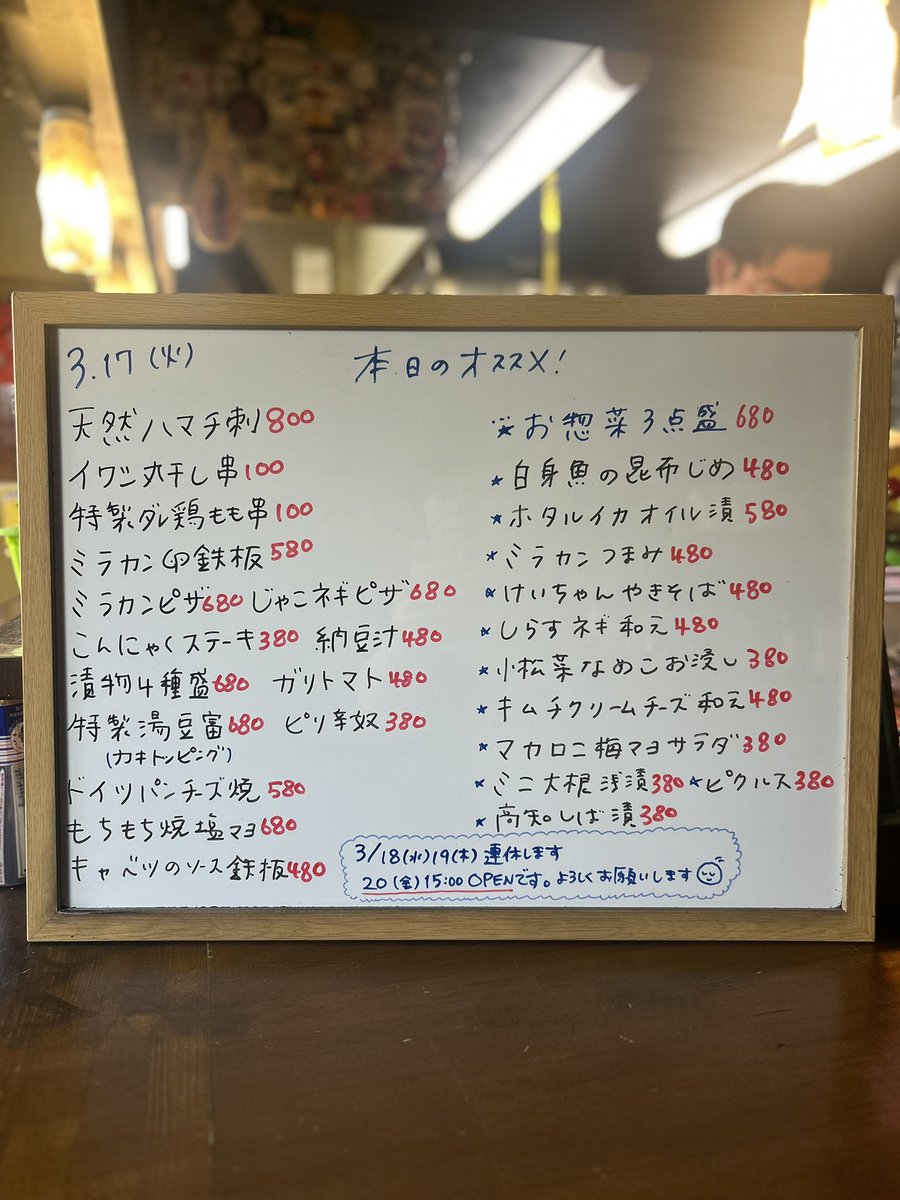 3.17(火)
本日のオススメ!
天然ハマチ刺800
イワシ丸干し串100
特製ダレ鶏もも串100
ミラカン鉄板580
ミラカンピザ680 じゃこネギピザ680
こんにゃくステーキ380 納豆汁480
漬物4種盛680 ガリトマト480
特製湯豆富680 ピリ辛奴380
(カキトッピング)
ドイツパンチーズ焼580
もちもち焼塩マヨ680
キャベツのソース鉄板480
★お惣菜3点盛680
★白身魚の昆布じめ480
★ホタルイカオイル漬580
★ミラカンつまみ480
★けいちゃんやきそば480
★しらすネギ和え480
★小松菜なめこお浸し380
★キムチクリームチーズ和え480
★マカロニ梅マヨサラダ380
★ミニ大根浅漬380★ピクルス380
★高知しば漬380
3/18(水)19(木)連休します
20(金)15:00 OPENです。よろしくお願いします